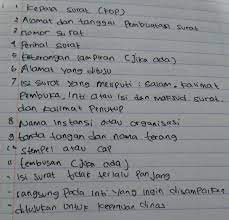 1 Kepala surat (KOP)
2 Alamat dan tanggal Pembuatan surat
3 nomor surat
4 Perihal surat
5 Keterangan lampiran (Jika ada)
6 Alamat yang dituju
7 Isi surat yang meliputi : Salam, kalimat
Pembuka, Inti atau Isi dan maksud surat,
dan kalimat Penutup
8 Nama Instansi atau organisasi
9 tanda tangan dan nama terang
10 stempel atau cap
11 tembusan (Jika ada)
- Isi surat tidak terlalu Panjang
- langsung Pada Inti yang ingin disampaikan
- ditujukan untuk keperluan dinas